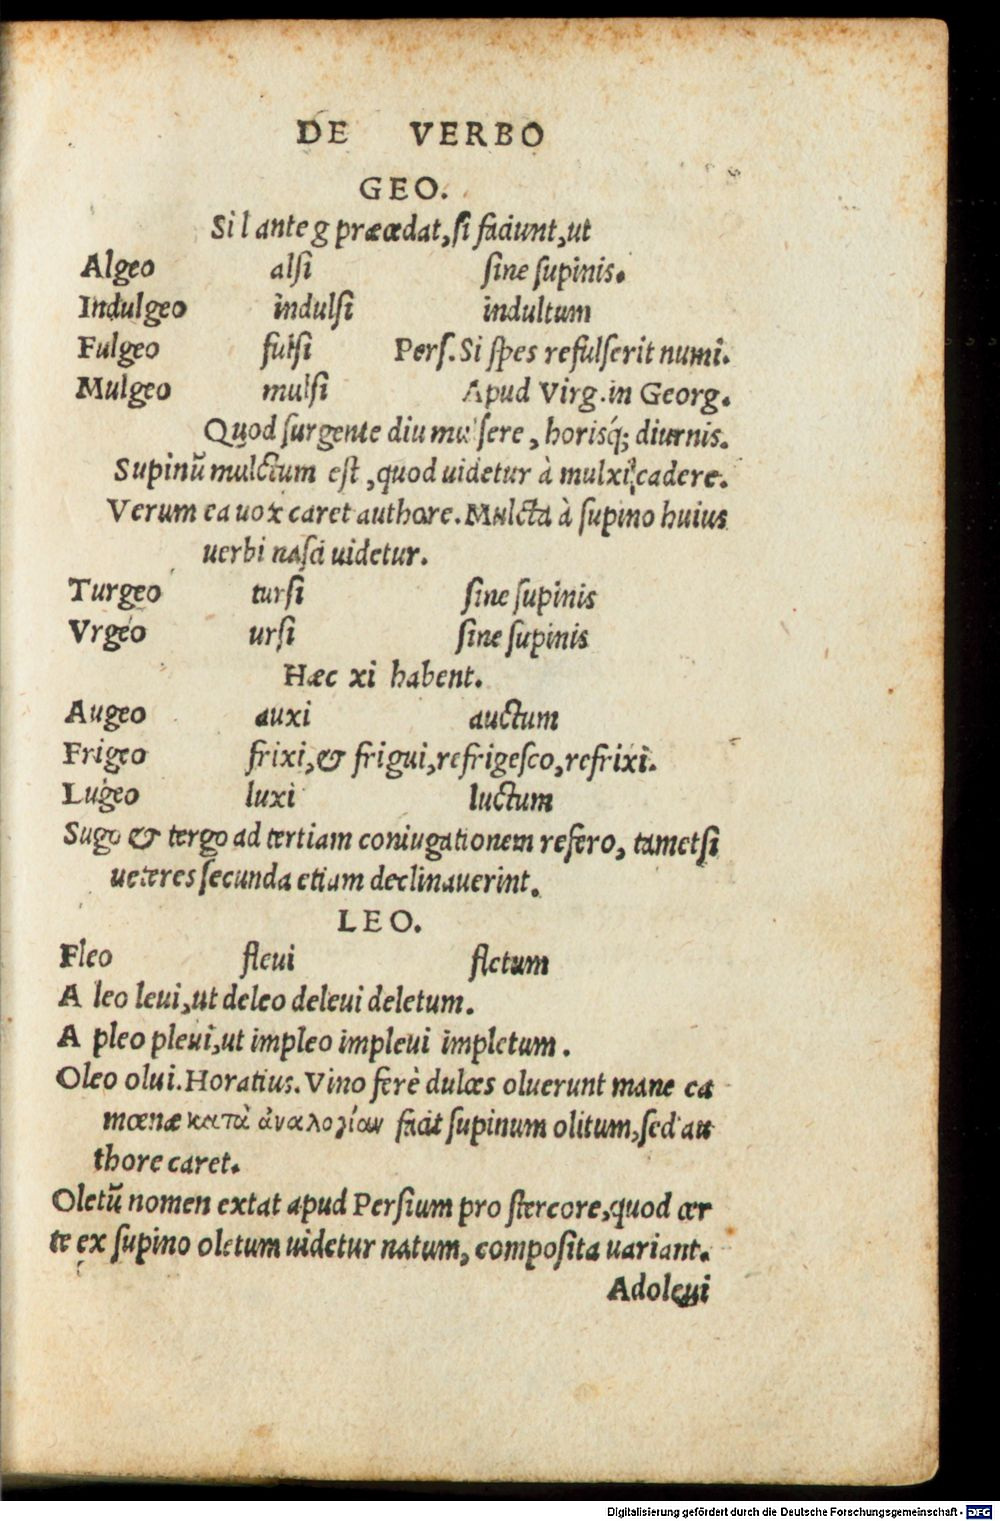 DE VERBO
GEO.
Si l ante g præcedat, si faciunt, ut
Algeo alsi sine supinis.
Indulgeo indulsi indultum
Fulgeo fulsi Pers. Si spes refulserit numi.
Mulgeo mulsi Apud Virg. in Georg.
Quod surgente die mulsere, horisq́; diurnis.
Supinū mulctum est, quod uidetur à mulxi cadere.
Verum ea uox caret authore. Mulcta à supino huius
uerbi nasci uidetur.
Turgeo tursi sine supinis
Vrgeo ursi sine supinis
Hæc xi habent.
Augeo auxi auctum
Frigeo frixi, & frigui, refrigesco, refrixi.
Lugeo luxi luctum
Sugo & tergo ad tertiam coniugationem refero, tametsi
ueteres secunda etiam declinauerint.
LEO.
Fleo fleui fletum
A leo leui, ut deleo deleui deletum.
A pleo pleui, ut impleo impleui impletum.
Oleo olui. Horatius. Vino ferè dulces oluerunt mane ca
mœnæ κατὰ ἀναλογίαν facit supinum olitum, sed au
thore caret.
Oletū nomen extat apud Persium pro stercore, quod cer
te ex supino oletum uidetur natum, composita uariant.
Adoleui
Digitalisierung gefördert durch die Deutsche Forschungsgemeinschaft - DFG